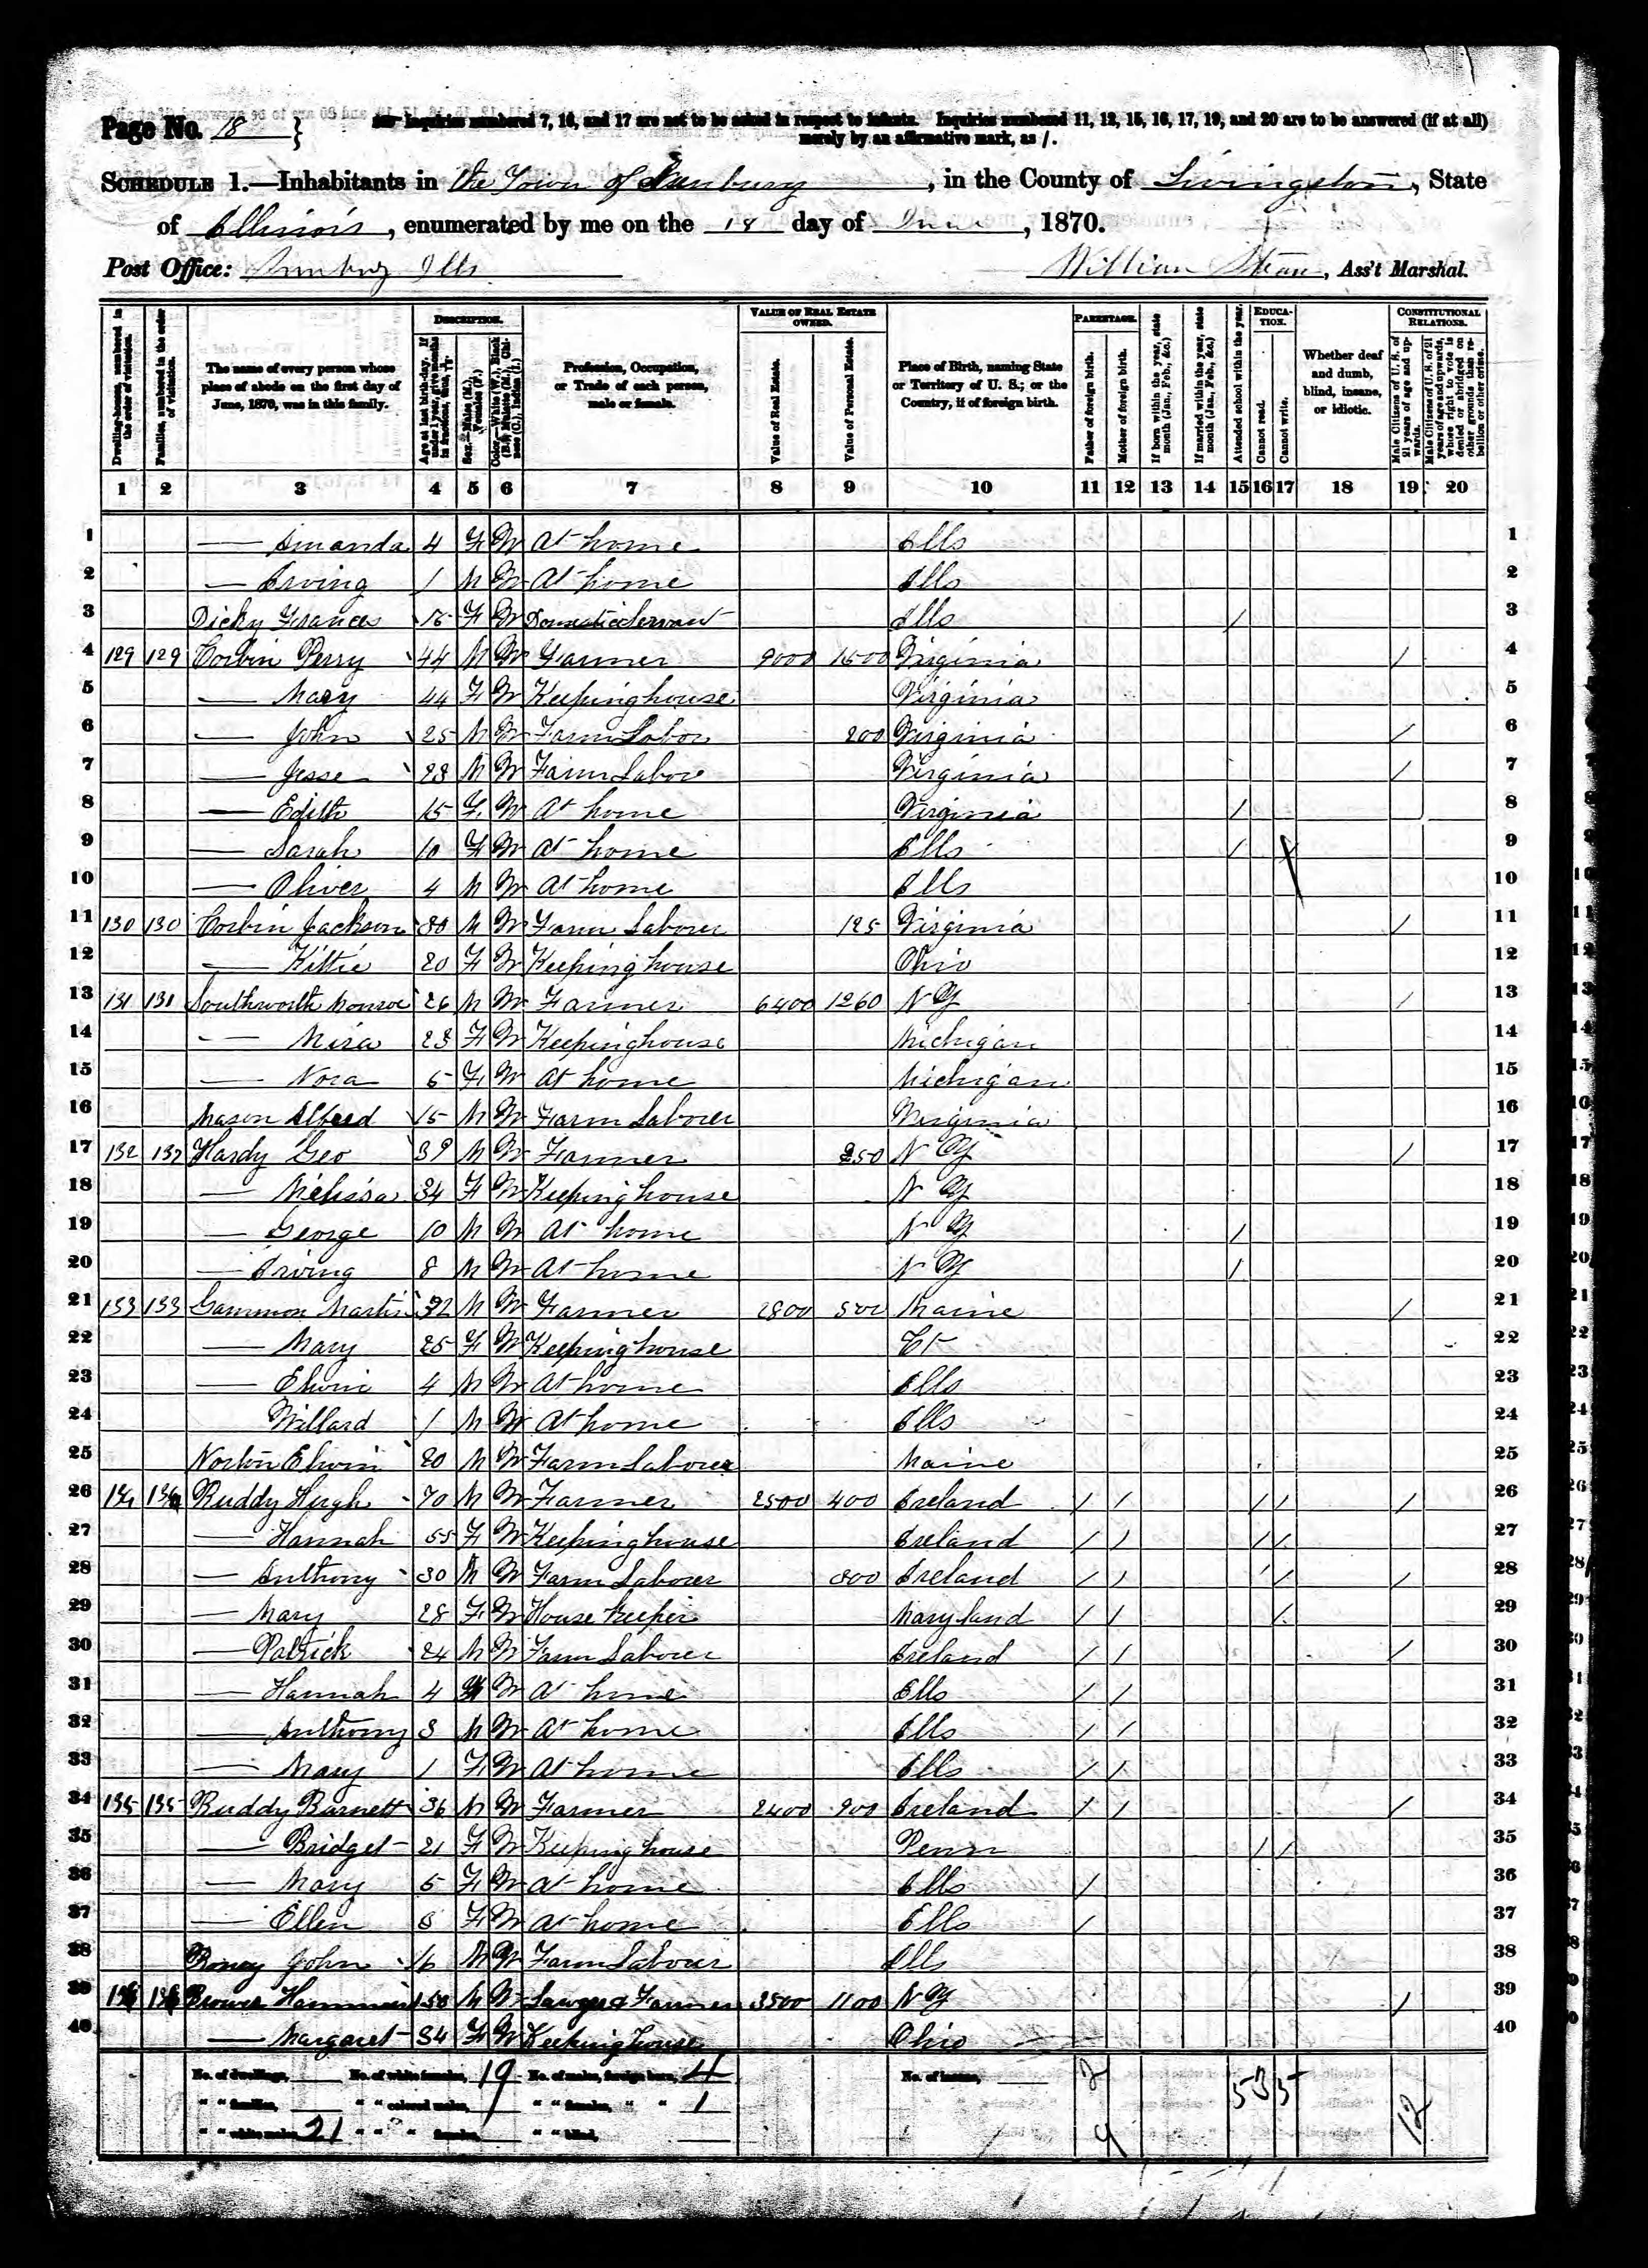 Page No. 18 } Inquiries numbered 7, 16, and 17 are not to be asked in respect to infants. Inquiries numbered 11, 12, 15, 16, 17, 19, and 20 are to be answered (if at all)
merely by an affirmative mark, as /.
SCHEDULE 1.—Inhabitants in the Town of Sunbury, in the County of Livingston, State
of Illinois, enumerated by me on the 18 day of June, 1870.
Post Office: Sunbury Ills William, Ass't Marshal.
Dwelling-houses, numbered in the order of visitation.
Families, numbered in the order of visitation.
The name of every person whose place of abode on the first day of June, 1870, was in this family.
DESCRIPTION.
Age at last birth-day. If under 1 year, give months in fractions, thus,
Sex.—Males (M.), Females (F.)
Color.—White (W.), Black (B.), Mulatto (M.), Chinese (C.), Indian (I.)
Profession, Occupation, or Trade of each person, male or female.
VALUE OF REAL ESTATE OWNED.
Value of Real Estate.
Value of Personal Estate.
Place of Birth, naming State or Territory of U. S.; or the Country, if of foreign birth.
PARENTAGE.
Father of foreign birth.
Mother of foreign birth.
If born within the year, state month (Jan., Feb., &c.)
If married within the year, state month (Jan., Feb., &c.)
Attended school within the year.
EDUCATION.
Cannot read.
Cannot write.
Whether deaf and dumb, blind, insane, or idiotic.
CONSTITUTIONAL RELATIONS.
Male Citizens of U. S. of 21 years of age and upwards.
Male Citizens of U. S. of 21 years of age and upwards, whose right to vote is denied or abridged on other grounds than rebellion or other crime.
1 2 3 4 5 6 7 8 9 10 11 12 13 14 15 16 17 18 19 20
1 — Amanda 4 F W At home Ills 1
2 — Irving 1 M W At home Ills 2
3 Dicky Frances 15 F W Domestic Servant Ills / 3
4 129 129 Corbin Perry 44 M W Farmer 9000 1500 Virginia / 4
5 — Mary 44 F W Keeping house Virginia 5
6 — John 25 M W Farm Labor 200 Virginia / 6
7 — Jesse 23 M W Farm Labor Virginia / 7
8 — Edith 15 F W At home Virginia / 8
9 — Sarah 10 F W At home Ills / / 9
10 — Oliver 4 M W At home Ills 10
11 130 130 Corbin Jackson 30 M W Farm Laborer 125 Virginia / 11
12 — Kittie 20 F W Keeping house Ohio 12
13 131 131 Southworth Monroe 26 M W Farmer 6400 1260 N Y / 13
14 — Mira 23 F W Keeping house Michigan 14
15 — Nora 5 F W At home Michigan 15
16 Mason Alfred 15 M W Farm Laborer Virginia 16
17 132 132 Hardy Geo 39 M W Farmer 250 N Y / 17
18 — Melissa 34 F W Keeping house N Y 18
19 — George 10 M W At home N Y / 19
20 — Irving 8 M W At home N Y / 20
21 133 133 Gammon Martin 32 M W Farmer 2800 500 Maine / 21
22 — Mary 25 F W Keeping house Ct 22
23 — Elwin 4 M W At home Ills 23
24 Willard 1 M W At home Ills 24
25 Norton Elwin 20 M W Farm Laborer Maine 25
26 134 134 Ruddy Hugh 70 M W Farmer 2500 400 Ireland / / / / / 26
27 — Hannah 55 F W Keeping house Ireland / / / / 27
28 — Anthony 30 M W Farm Laborer 300 Ireland / / / / / 28
29 — Mary 28 F W House Keeper Maryland / / / 29
30 — Patrick 24 M W Farm Laborer Ireland / / / 30
31 — Hannah 4 F W At home Ills / / 31
32 — Anthony 3 M W At home Ills / / 32
33 — Mary 1 F W At home Ills / / 33
34 135 135 Ruddy Barnett 36 M W Farmer 2400 900 Ireland / / / 34
35 — Bridget 21 F W Keeping house Penn / / 35
36 — Mary 5 F W At home Ills / 36
37 — Ellen 3 F W At home Ills / 37
38 Roney John 16 M W Farm Laborer Ills 38
39 136 136 Brower 50 M W Lawyer & Farmer 3500 1100 N Y / 39
40 — Margaret 34 F W Keeping house Ohio 40
No. of dwellings, No. of white females, 19 No. of males, foreign born, 4 No. of insane, 2 5 3 5
" " families, " " colored males, " " females, " " 1
" " white males, 21 " " " females, " " blind, 9 12